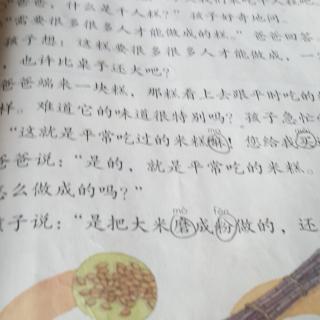 爸爸，什么是千人糕？”孩子好奇地问。
“需要很多很多人才能做成的糕。”爸爸回答
孩子想：这糕要很多很多人才能做成，一
，也许比桌子还大吧？
爸爸端来一块糕，那糕看上去跟平时吃的
样。难道它的味道很特别吗？孩子急忙
“这就是平常吃过的米糕嘛！您给我买
爸爸说：“是的，就是平常吃的米糕。
怎么做成的吗？”
mò fěn
孩子说：“是把大米磨成粉做的，还